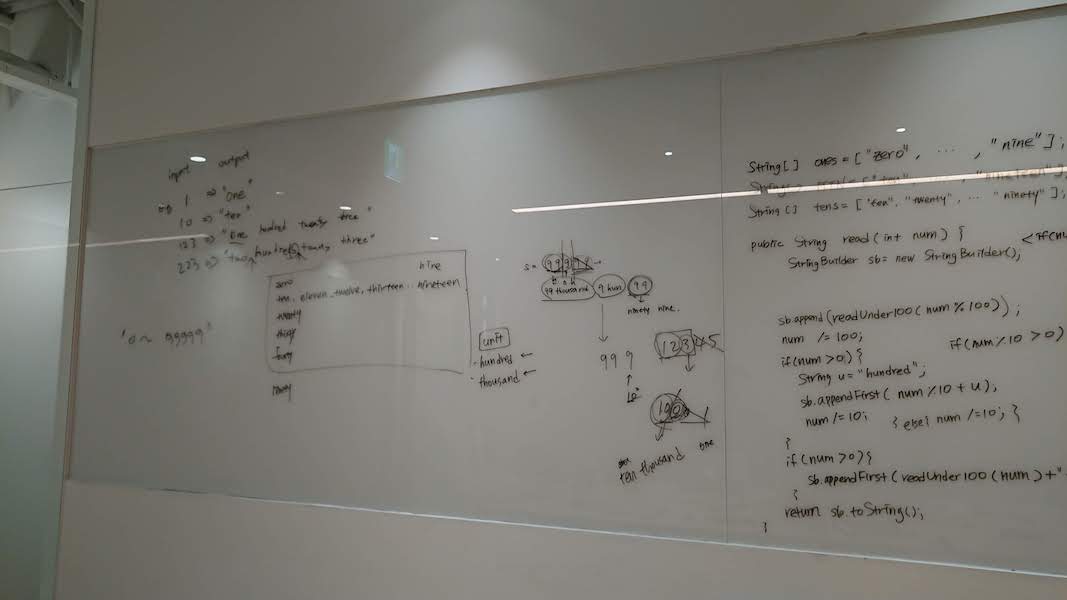 input output
1 => "one"
10 => "ten"
123 => "one hundred twenty three"
223 => "two hundred twenty three"
"0 ~ 99999"
zero nine
ten, eleven, twelve, thirteen .. nineteen
twenty
thirty
ninety
unit
- hundred ←
- thousand ←
99 thousand 9 hun 99
ninety nine.
999
12345
ten thousand one
String[] ones = ["zero", ... , "nine"];
String[] tens = ["ten", "twenty", ... "ninety"];
public String read(int num) {
StringBuilder sb = new StringBuilder();
sb.append(readUnder100(num%100));
num /= 100;
if(num%10 > 0)
if(num>0) {
String u = "hundred";
sb.appendFirst( num%10 + u),
num /= 10; } else{ num /=10; }
}
if(num>0){
sb.appendFirst(readUnder100(num)+"
}
return sb.toString();
}